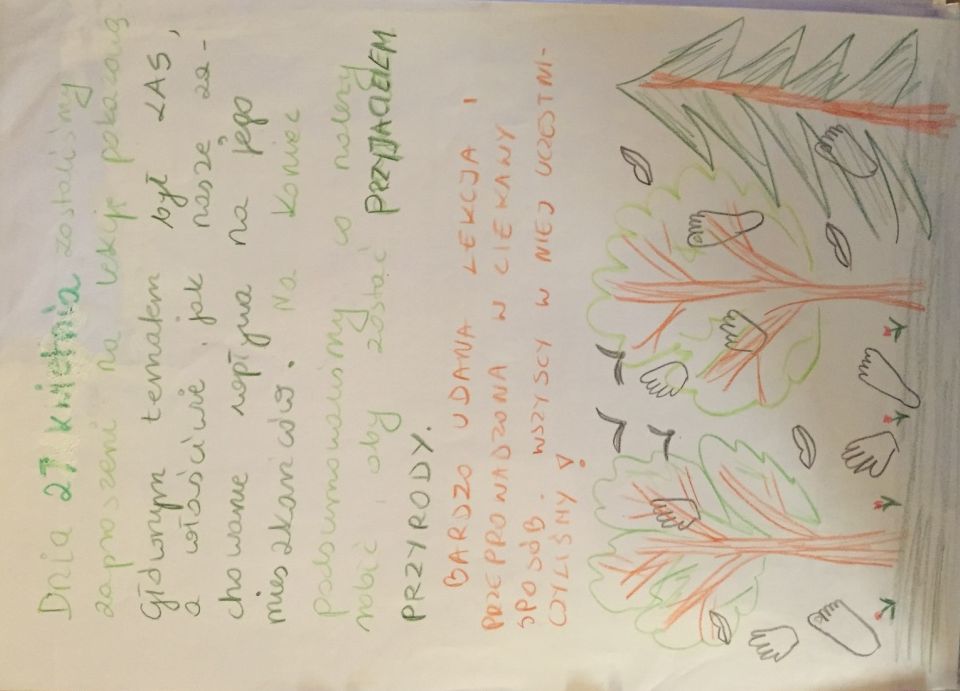 Dnia 27 kwietnia zostaliśmy
zaproszeni na lekcje pokazaną.
Głównym tematem był LAS,
a właściwie jak nasze za-
chowanie wpływa na jego
mieszkańców. Na koniec
podsumowaliśmy co należy
robić aby zostać PRZYJACIELEM
PRZYRODY.
BARDZO UDANA LEKCJA I
PRZEPROWADZONA W CIEKAWY
SPOSÓB. WSZYSCY W NIEJ UCZESTNI-
CZYLIŚMY!